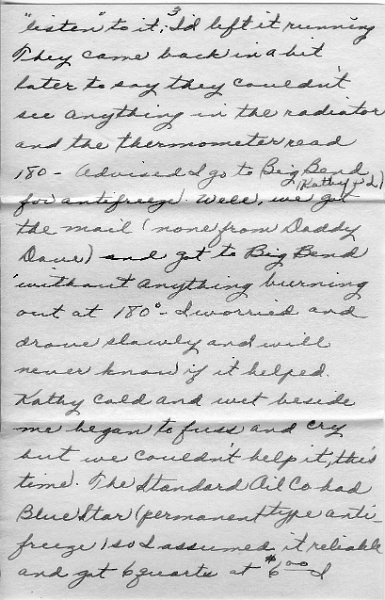 "listen" to it; I'd left it running
They came back in a bit
later to say they couldn't
see anything in the radiator
and the thermometer read
180 - Advised I go to Big Bend
(Kathy & I)
for antifreeze. Well, we got
the mail (none from Daddy
Dave) and got to Big Bend
without anything burning
out at 180° - I worried and
drove slowly and will
never know if it helped.
Kathy cold and wet beside
me began to fuss and cry
but we couldn't help it, this
time. The Standard Oil Co had
Blue Star (permanent type anti-
freeze) so I assumed it reliable
and got 6 quarts at $6.00 I